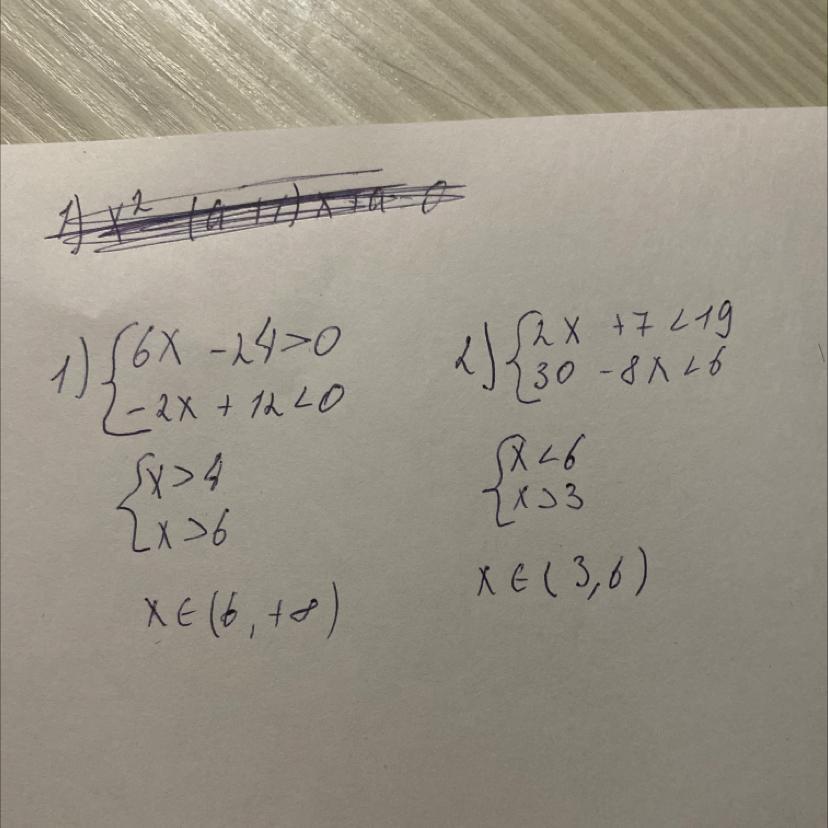 1) {6x - 24 > 0
{-2x + 12 < 0
{x > 4
{x > 6
x ∈ (6, +∞)
2) {2x + 7 < 19
{30 - 8x < 6
{x < 6
{x > 3
x ∈ (3, 6)